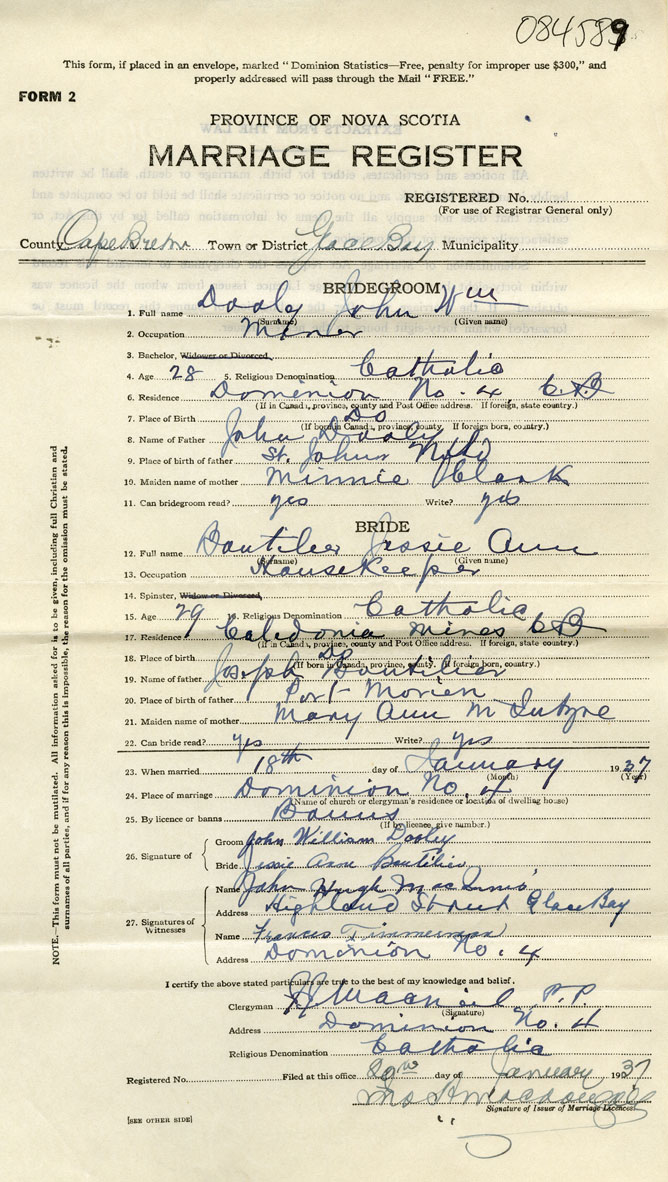 084589
This form, if placed in an envelope, marked "Dominion Statistics—Free, penalty for improper use $300," and
properly addressed will pass through the Mail "FREE."
FORM 2
PROVINCE OF NOVA SCOTIA
MARRIAGE REGISTER
REGISTERED No.
(For use of Registrar General only)
County Cape Breton Town or District Glace Bay Municipality
BRIDEGROOM
1. Full name Dooly John Wm
(Surname) (Given name)
2. Occupation Miner
3. Bachelor, Widower or Divorced
4. Age 28 5. Religious Denomination Catholic
6. Residence Dominion No. 4, C.B
(If in Canada, province, county and Post Office address. If foreign, state country.)
7. Place of Birth Do
(If born in Canada, province, county. If foreign born, country.)
8. Name of Father John Dooly
9. Place of birth of father St. Johns Nfld
10. Maiden name of mother Minnie Clark
11. Can bridegroom read? yes Write? yes
BRIDE
12. Full name Boutilier Jessie Ann
(Surname) (Given name)
13. Occupation Housekeeper
14. Spinster, Widow or Divorced
15. Age 29 16. Religious Denomination Catholic
17. Residence Caledonia Mines CB
(If in Canada, province, county and Post Office address. If foreign, state country.)
18. Place of birth Do
(If born in Canada, province, county. If foreign born, country.)
19. Name of father Joseph Boutilier
20. Place of birth of father Port Morien
21. Maiden name of mother Mary Ann McIntyre
22. Can bride read? yes Write? yes
23. When married 18th day of January 1937
(Month) (Year)
24. Place of marriage Dominion No. 4
(Name of church or clergyman's residence or location of dwelling house)
25. By licence or banns Banns
(If by licence, give number.)
26. Signature of Groom John William Dooley
Bride Jessie Ann Boutilier
27. Signatures of Witnesses Name John Hugh MacInnis
Address Highland Street Glace Bay
Name Frances Timmerman
Address Dominion No. 4
I certify the above stated particulars are true to the best of my knowledge and belief.
Clergyman P.P.
(Signature)
Address Dominion No. 4
Religious Denomination Catholic
Registered No. Filed at this office day of January 1937
Signature of Issuer of Marriage Licences
[SEE OTHER SIDE]
NOTE.—This form must not be mutilated. All information asked for is to be given, including full Christian and
surnames of all parties, and if for any reason this is impossible, the reason for the omission must be stated.